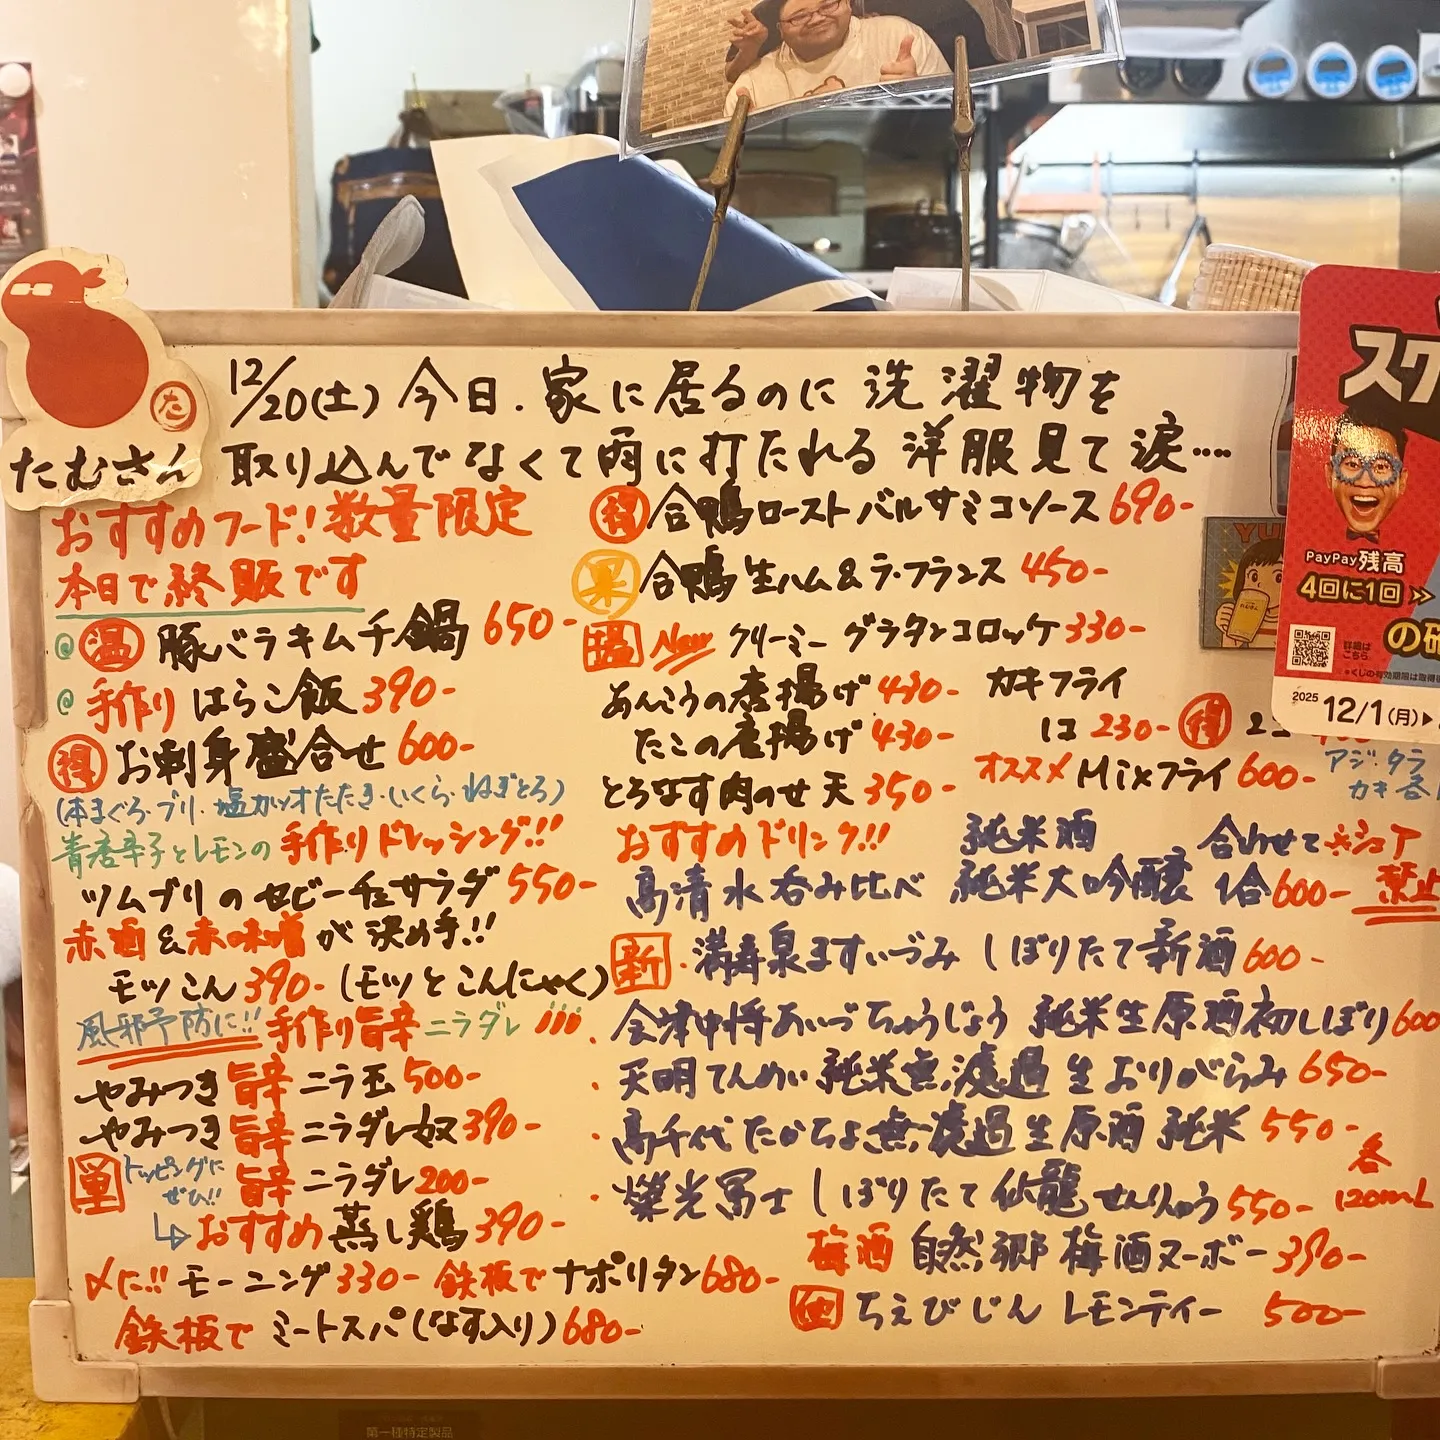 12/20(土) 今日、家に居るのに洗濯物を
取り込んでなくて雨に打たれる洋服見て涙…
たむさん
た
おすすめフード! 数量限定
本日で終販です
@ 温 豚バラキムチ鍋 650-
@ 手作り はらこ飯 390-
得 お刺身盛合せ 600-
(本まぐろ・ブリ・塩カツオたたき・いくら・ねぎとろ)
青唐辛子とレモンの 手作りドレッシング!!
ツムブリのセビーチェサラダ 550-
赤酒&赤味噌が決め手!!
モツこん 390- (モツとこんにゃく)
風邪予防に!! 手作り旨辛 ニラダレ
やみつき 旨辛 ニラ玉 500-
やみつき 旨辛 ニラダレ奴 390-
単 トッピングに ぜひ!! 旨辛 ニラダレ 200-
おすすめ 蒸し鶏 390-
〆に!! モーニング 330- 鉄板で ナポリタン 680-
鉄板で ミートスパ(なす入り) 680-
得 合鴨ロースト バルサミコソース 690-
果 合鴨生ハム&ラ・フランス 450-
塩 New クリーミーグラタンコロッケ 330-
あんこうの唐揚げ 430-
たこの唐揚げ 430-
とろなす肉のせ天 350-
カキフライ
1コ 230- 得 2コ
オススメ Mixフライ 600-
アジ・タラ
カキ各1
おすすめドリンク!!
高清水呑み比べ 純米酒 純米大吟醸 合わせて 1合 600- ※シェア 禁止
新 ・満寿泉ますいづみ しぼりたて新酒 600-
・会津中将あいづちゅうじょう 純米生原酒初しぼり 600
・天明てんめい 純米無濾過生おりがらみ 650-
・高千代たかちよ無濾過生原酒 純米 550-
・榮光冨士 しぼりたて 仙龍せんりゅう 550-
各
120mL
梅酒 自然郷 梅酒ヌーボー 390-
他 ちえびじん レモンティー 500-
YU
スク
PayPay残高
4回に1回
の確
詳細は
こちら
2025 12/1(月)▶
第一種特定製品